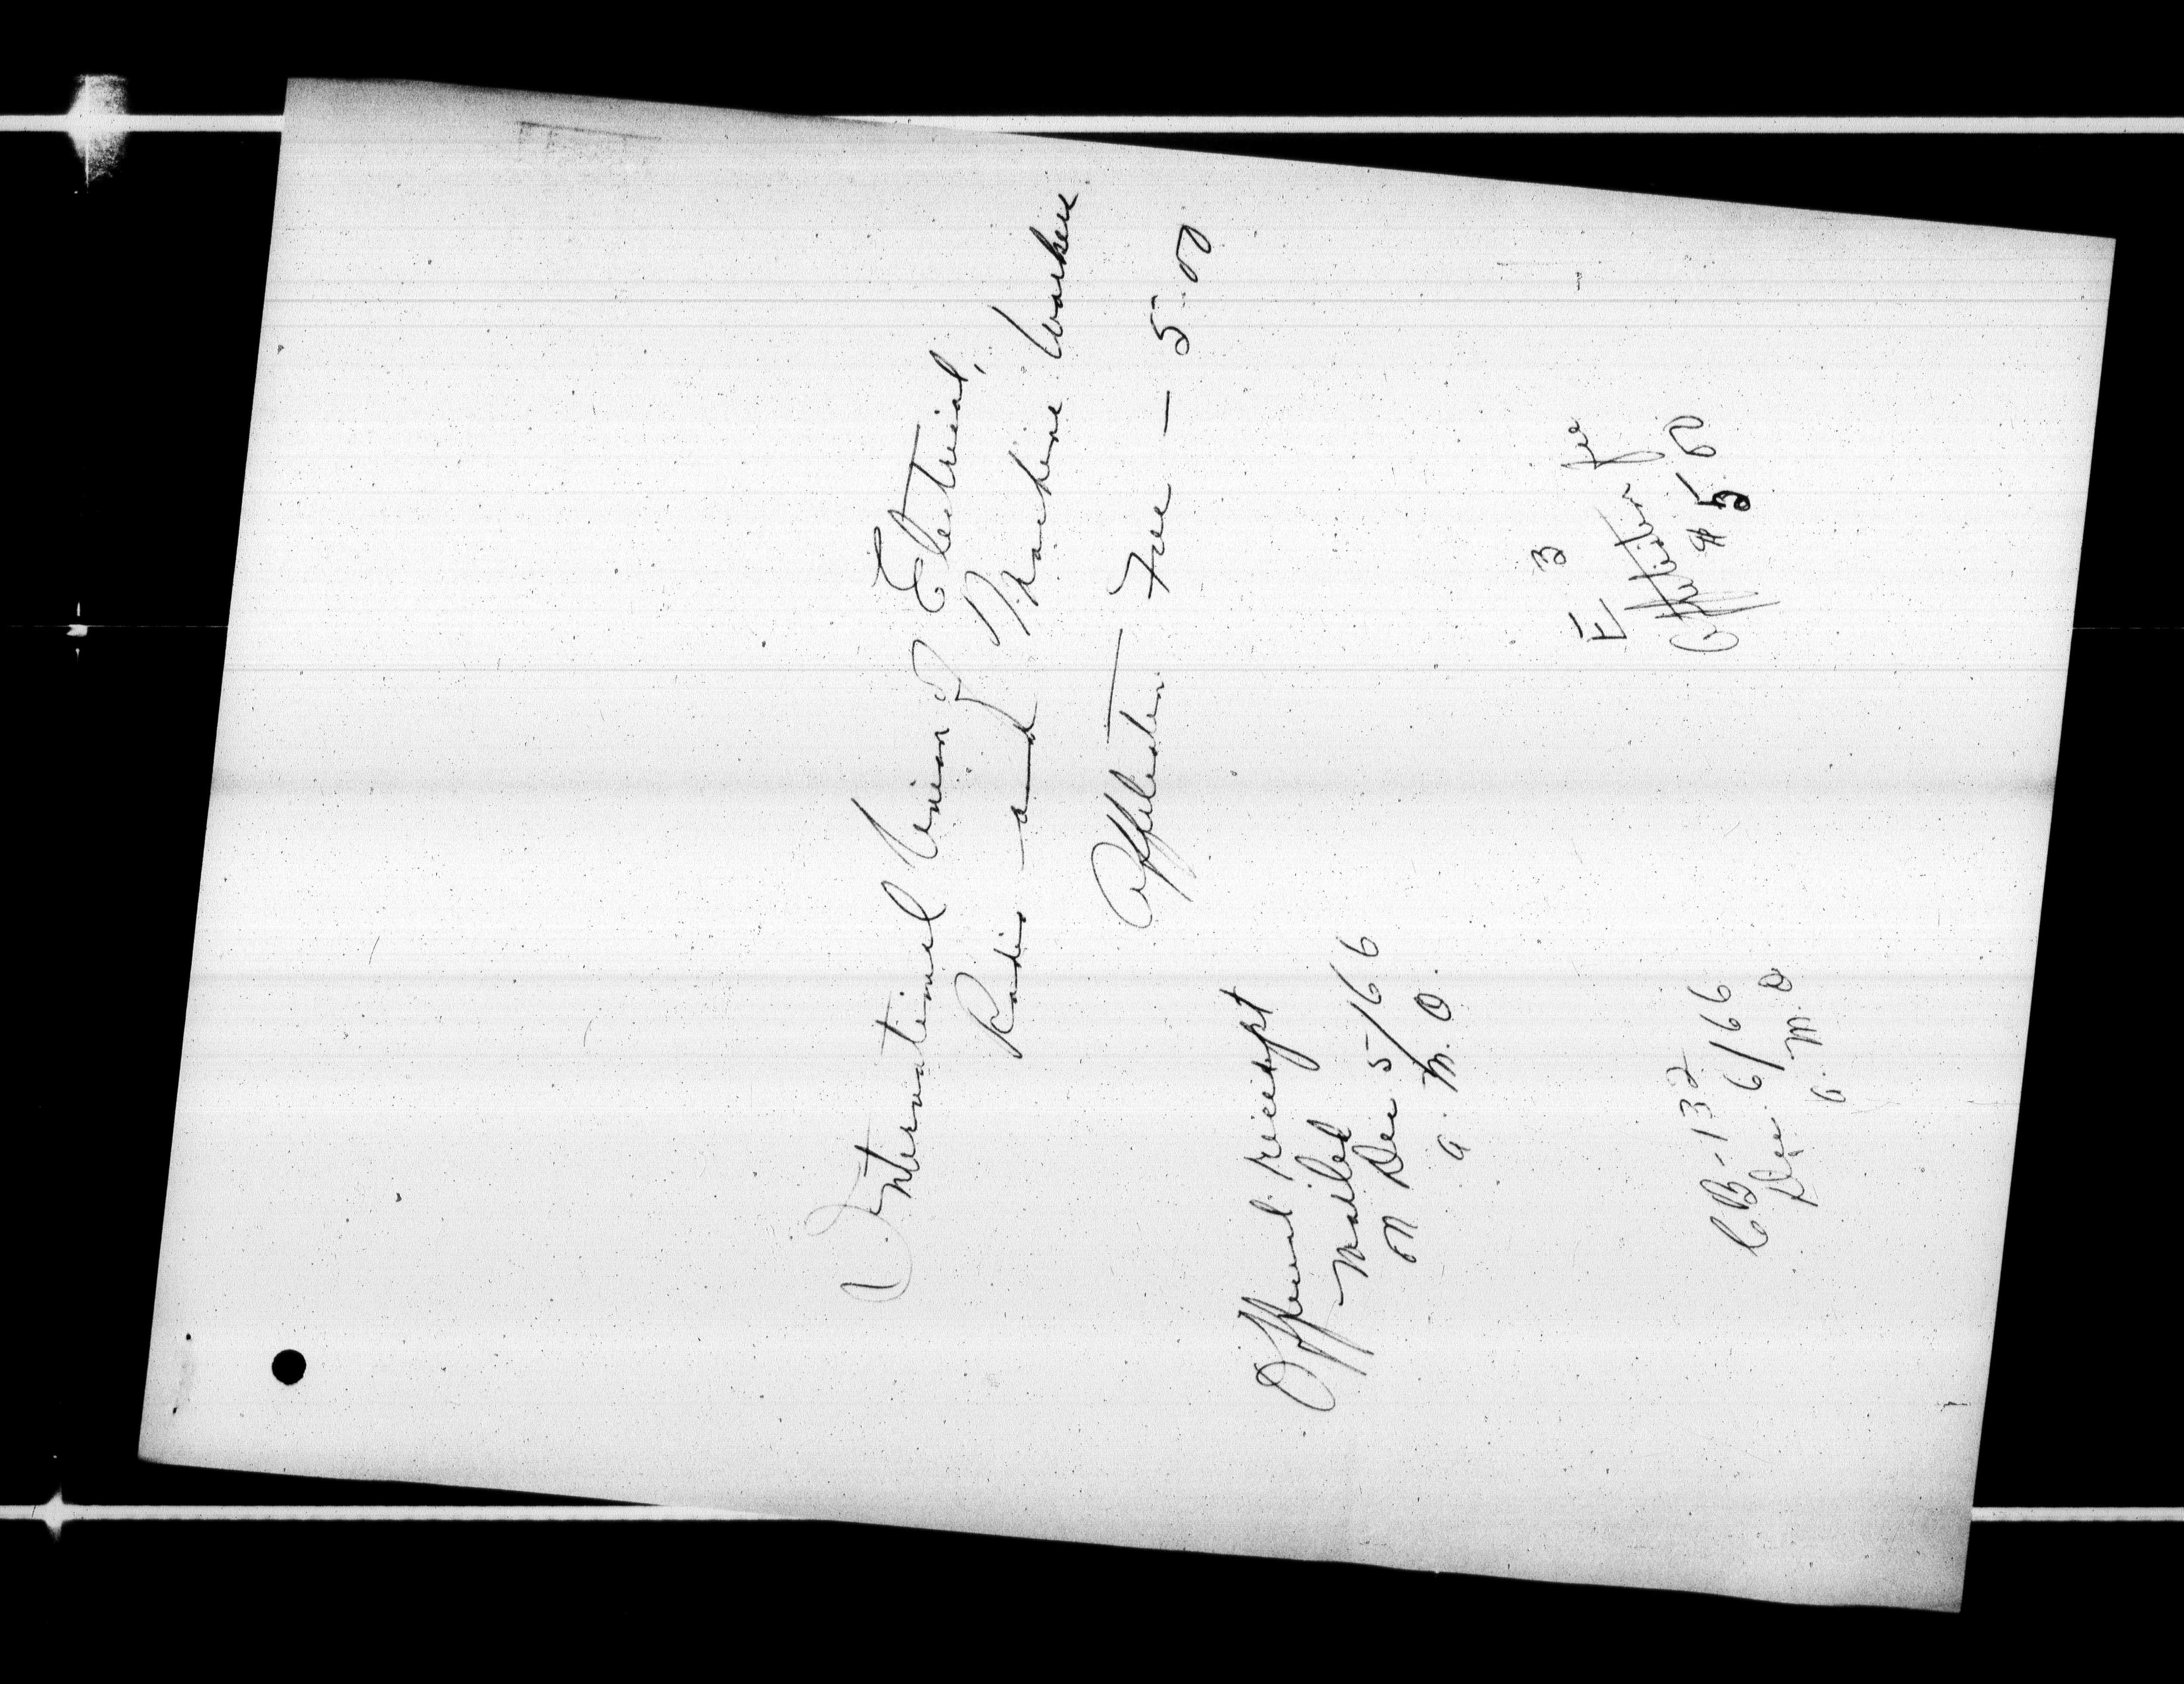 International Union of Electrical,
Radio and Machine Workers
Affiliation Fee — 5.00
Official receipt
mailed
on Dec 5/66
a. M. O.
E 3
Affiliation fee
$5.00
CB-132
Dec. 6/66
a. M. O